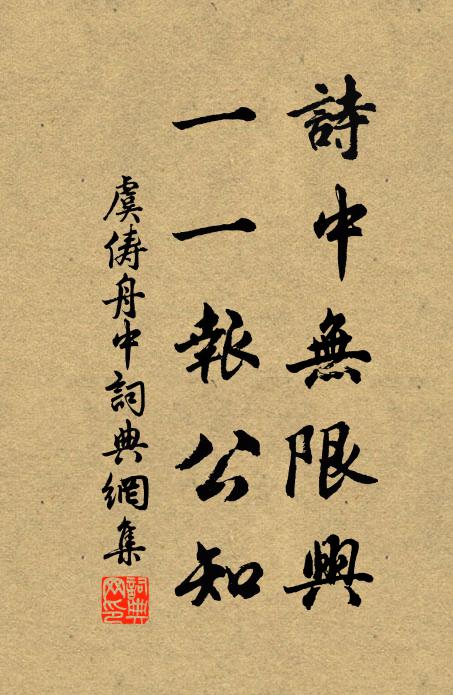 詩中無限興
一一報公知
虞儔舟中詞典網集
詞典網印